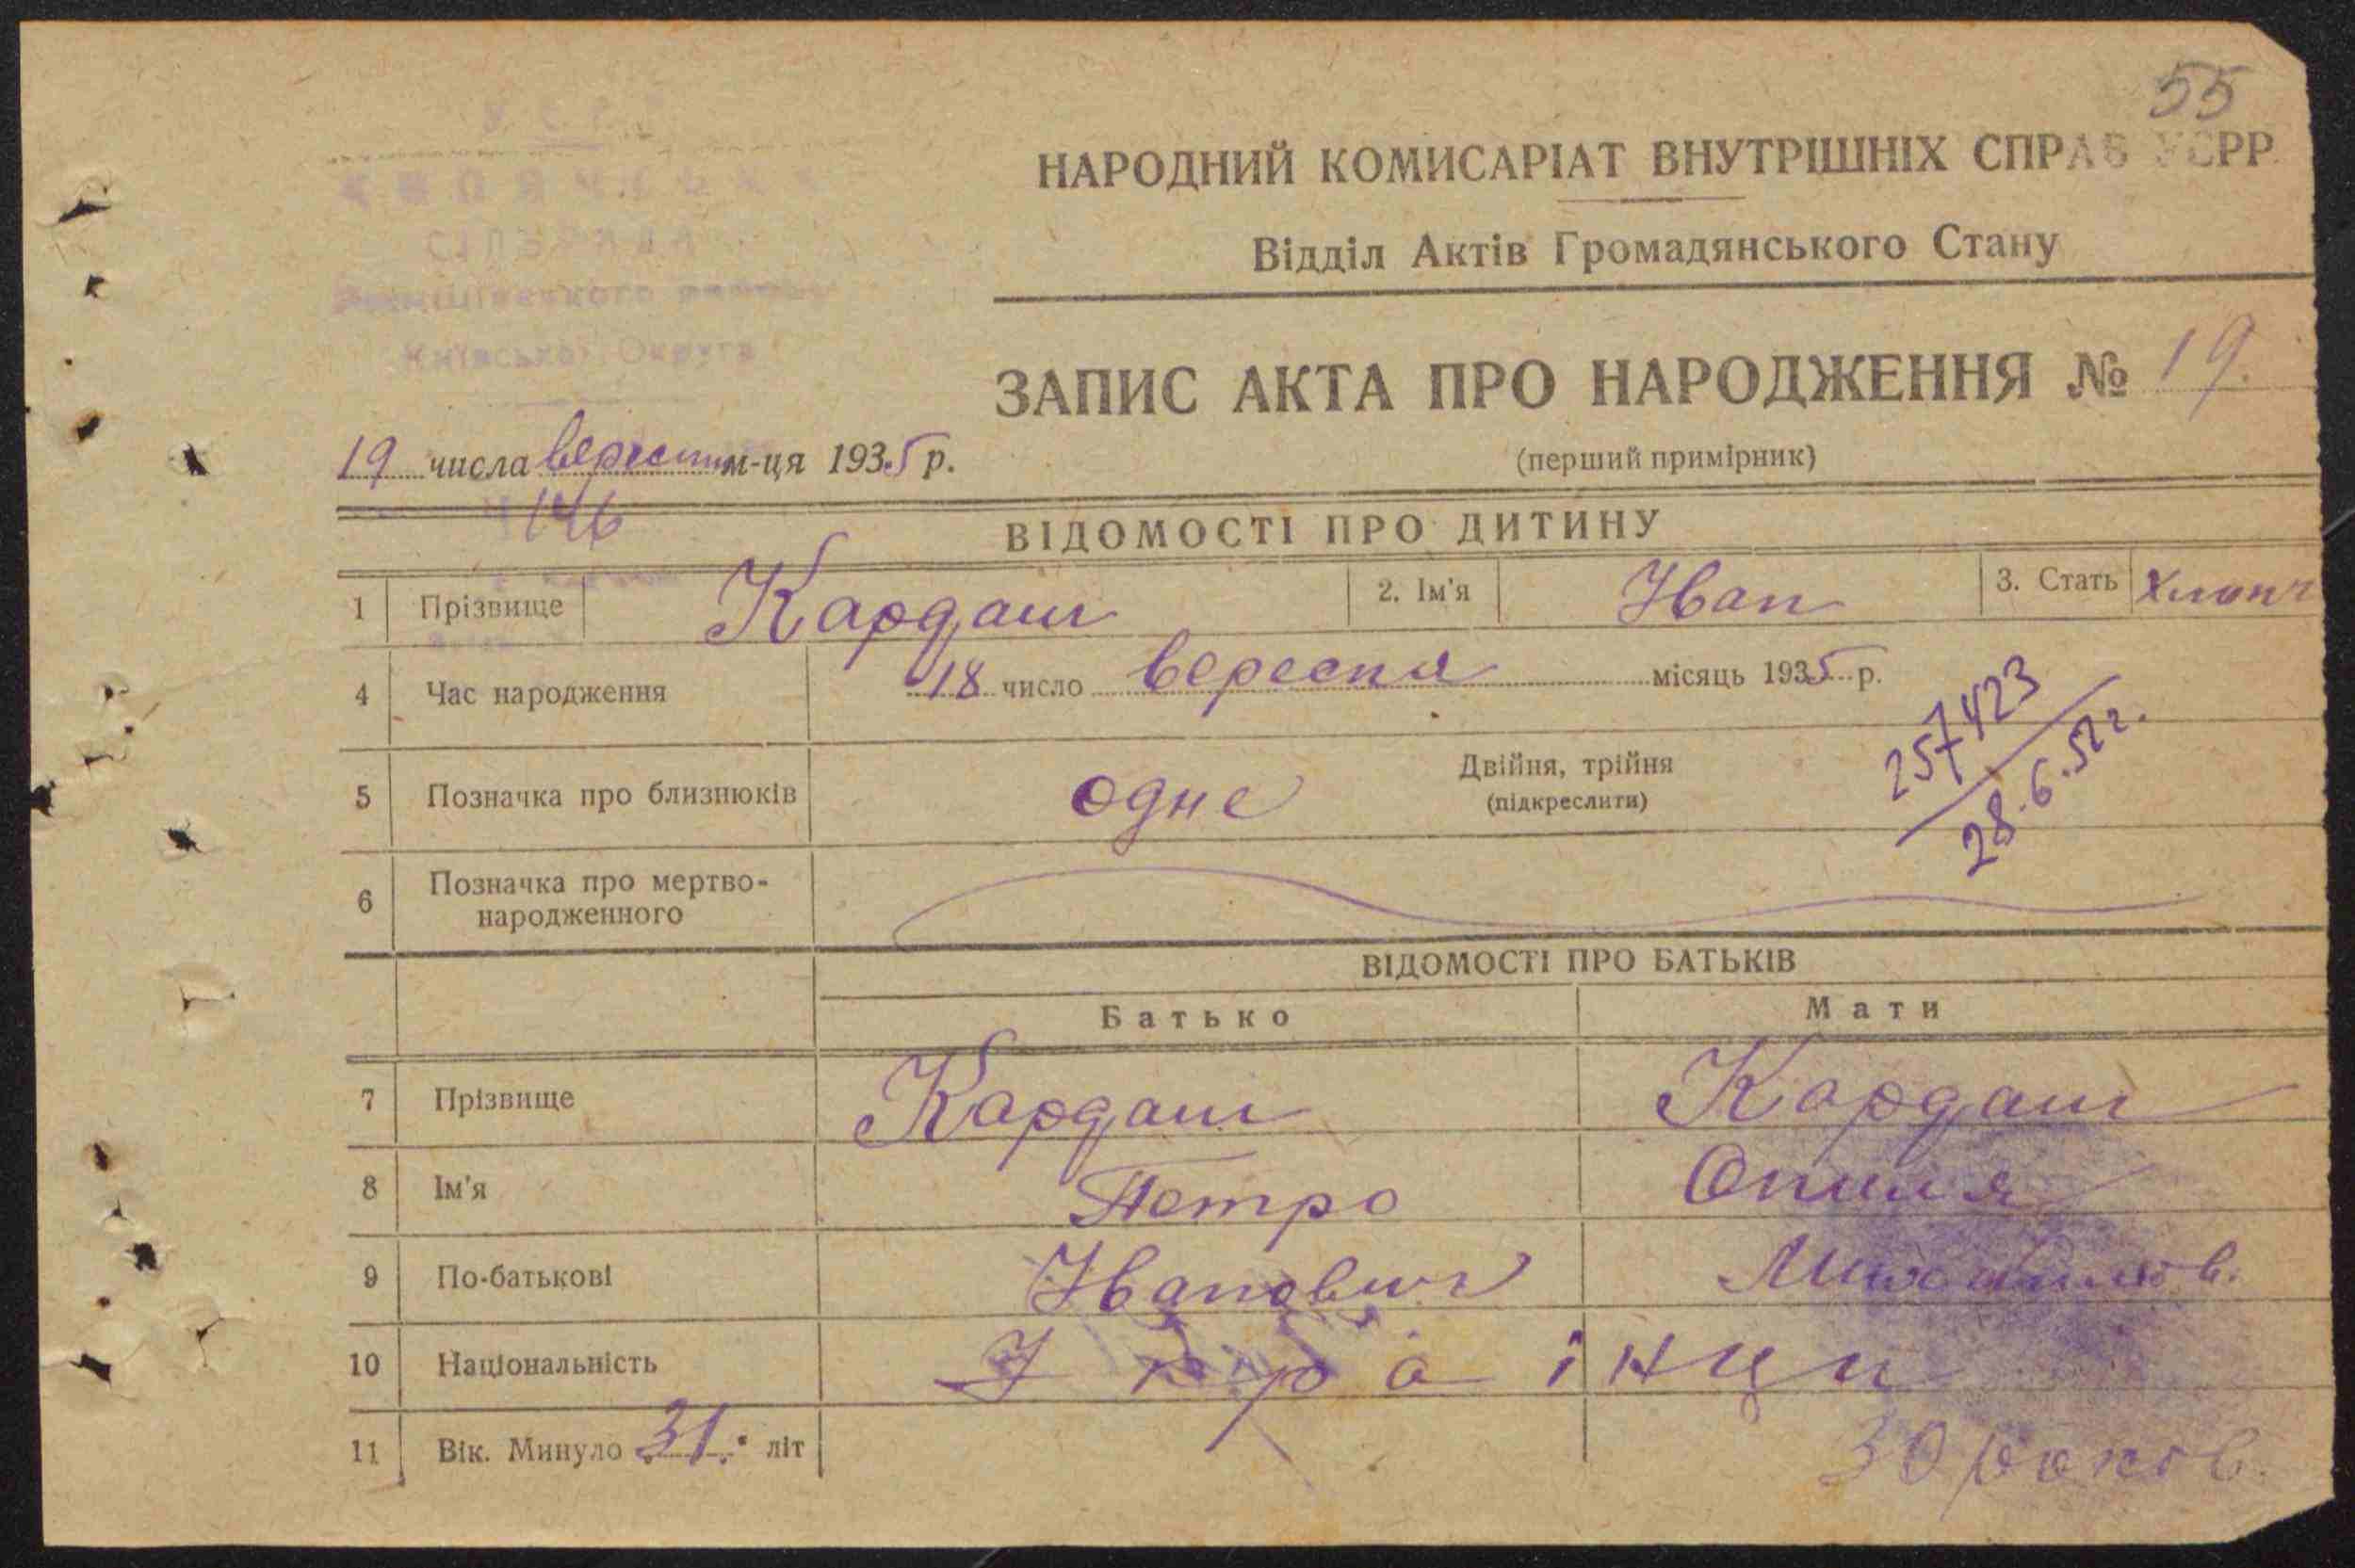 55
У.С.Р.Р.
СІЛЬРАДА
Київської Округи
НАРОДНИЙ КОМИСАРІАТ ВНУТРІШНІХ СПРАВ УСРР
Відділ Актів Громадянського Стану
ЗАПИС АКТА ПРО НАРОДЖЕННЯ № 19.
(перший примірник)
19 числа вересня м-ця 1935 р.
146
ВІДОМОСТІ ПРО ДИТИНУ
1 Прізвище Кардаш 2. Ім'я Іван 3. Стать Хлопч
4 Час народження 18 число вересня місяць 1935 р.
257423
28.6.52 г.
5 Позначка про близнюків одне Двійня, трійня
(підкреслити)
6 Позначка про мертво-
народженного
ВІДОМОСТІ ПРО БАТЬКІВ
Батько Мати
7 Прізвище Кардаш Кардаш
8 Ім'я Петро
9 По-батькові Іванович
10 Національність Українци
11 Вік. Минуло 31. літ 30 роков.